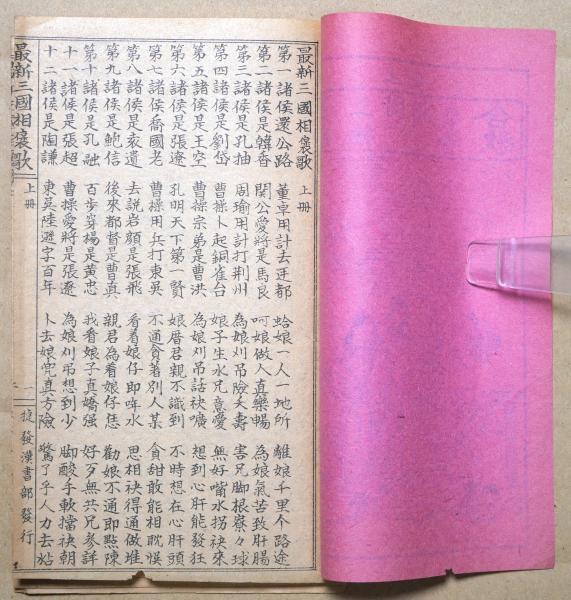 最新三國相褒歌 上冊
第一諸侯還公路 董卓用計去迁都 蛤娘一人一地所 離娘千里个路途
第二諸侯是韓香 關公愛將是馬良 呵娘做人真樂暢 為娘氣苦致肝腸
第三諸侯是孔抽 周瑜用計打荆州 為娘刈吊險夭壽 害兄脚根察々球
第四諸侯是劉岱 曹操卜起銅雀台 娘子生水兄意愛 無好嘴水拐袂來
第五諸侯是王空 曹操宗弟是曹洪 為娘刈吊話袂嚝 想到心肝能發狂
第六諸侯是張遼 孔明天下第一賢 娘厝君親不識到 不時想在心肝頭
第七諸侯喬國老 曹操用兵打東吳 不通貪著別人某 貪甜敢能相耽悮
第八諸侯是袁遺 去説岩顔是張飛 看着娘仔即呠水 思相袂得通做堆
第九諸侯是鮑信 後來都督是曹真 親君為看娘仔恁 勸娘不通即㸃陳
第十諸侯是孔融 百步穿楊是黃忠 我看娘子真嬌强 好歹無共兄参詳
十一諸侯是張超 曹操愛將是張遼 為娘刈吊想到少 脚酸手軟擋袂朝
十二諸侯是陶謙 東吳陸遜字百年 卜去娘兜真方險 驚了乎人力去姑
最新三國相褒歌 上冊 一 捷發漢書部發行